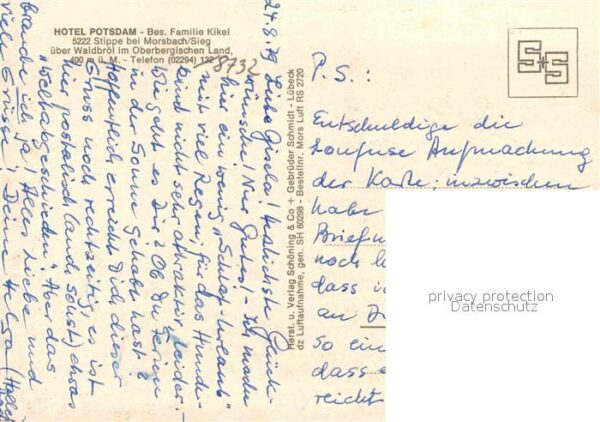 HOTEL POTSDAM - Bes. Familie Kikel
5222 Stippe bei Morsbach/Sieg
über Waldbröl im Oberbergischen Land,
400 m ü. M. - Telefon (02294) 132
8732
24.8.79 Liebe Gisela! Herzlichste Glück-
wünsche! Nur Gutes! - Ich mache
hier ein wenig "Schlaf-Urlaub"
mit viel Regen, für das Hunde-
kind nicht sehr attraktiv, leider.
Wie geht es Dir? Ob Du Ferien
in der Sonne gehabt hast?
Hoffentlich erreicht Dich dieser
Gruss noch rechtzeitig, es ist
hier postalisch (auch sonst) etwas
"weltabgeschieden". Aber das
brauche ich ja! Alles Liebe und
viele Grüsse! Deine Helga
Herst. u. Verlag Schöning & Co + Gebrüder Schmidt - Lübeck
dz Luftaufnahme, gen. SH 60/298 - Bestellnr. Mors Luft RS 2720
S+S
P.S.:
Entschuldige die
konfuse Aufmachung
der Karte; inzwischen
habe
noch
dass i
an
so ein
dass
reicht
privacy protection
Datenschutz